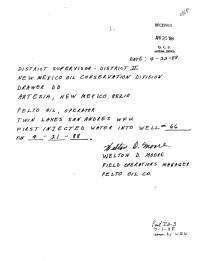 RECEIVED
APR 25 '88
O. C. D.
ARTESIA, OFFICE
DATE: 4-22-88
DISTRICT SUPERVISOR - DISTRICT II
NEW MEXICO OIL CONSERVATION DIVISION
DRAWER DD
ARTESIA, NEW MEXICO 88210
PELTO OIL, OPERATOR
TWIN LAKES SAN ANDRES WFU
FIRST INJECTED WATER INTO WELL # 66
ON 4-21-88.
Welton D. Moore
WELTON D. MOORE
FIELD OPERATIONS MANAGER
PELTO OIL CO.
Post ID-3